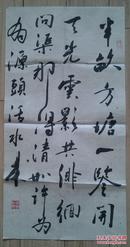 半畝方塘一鑒開
天光雲影共徘徊
問渠那得清如許為
有源頭活水來